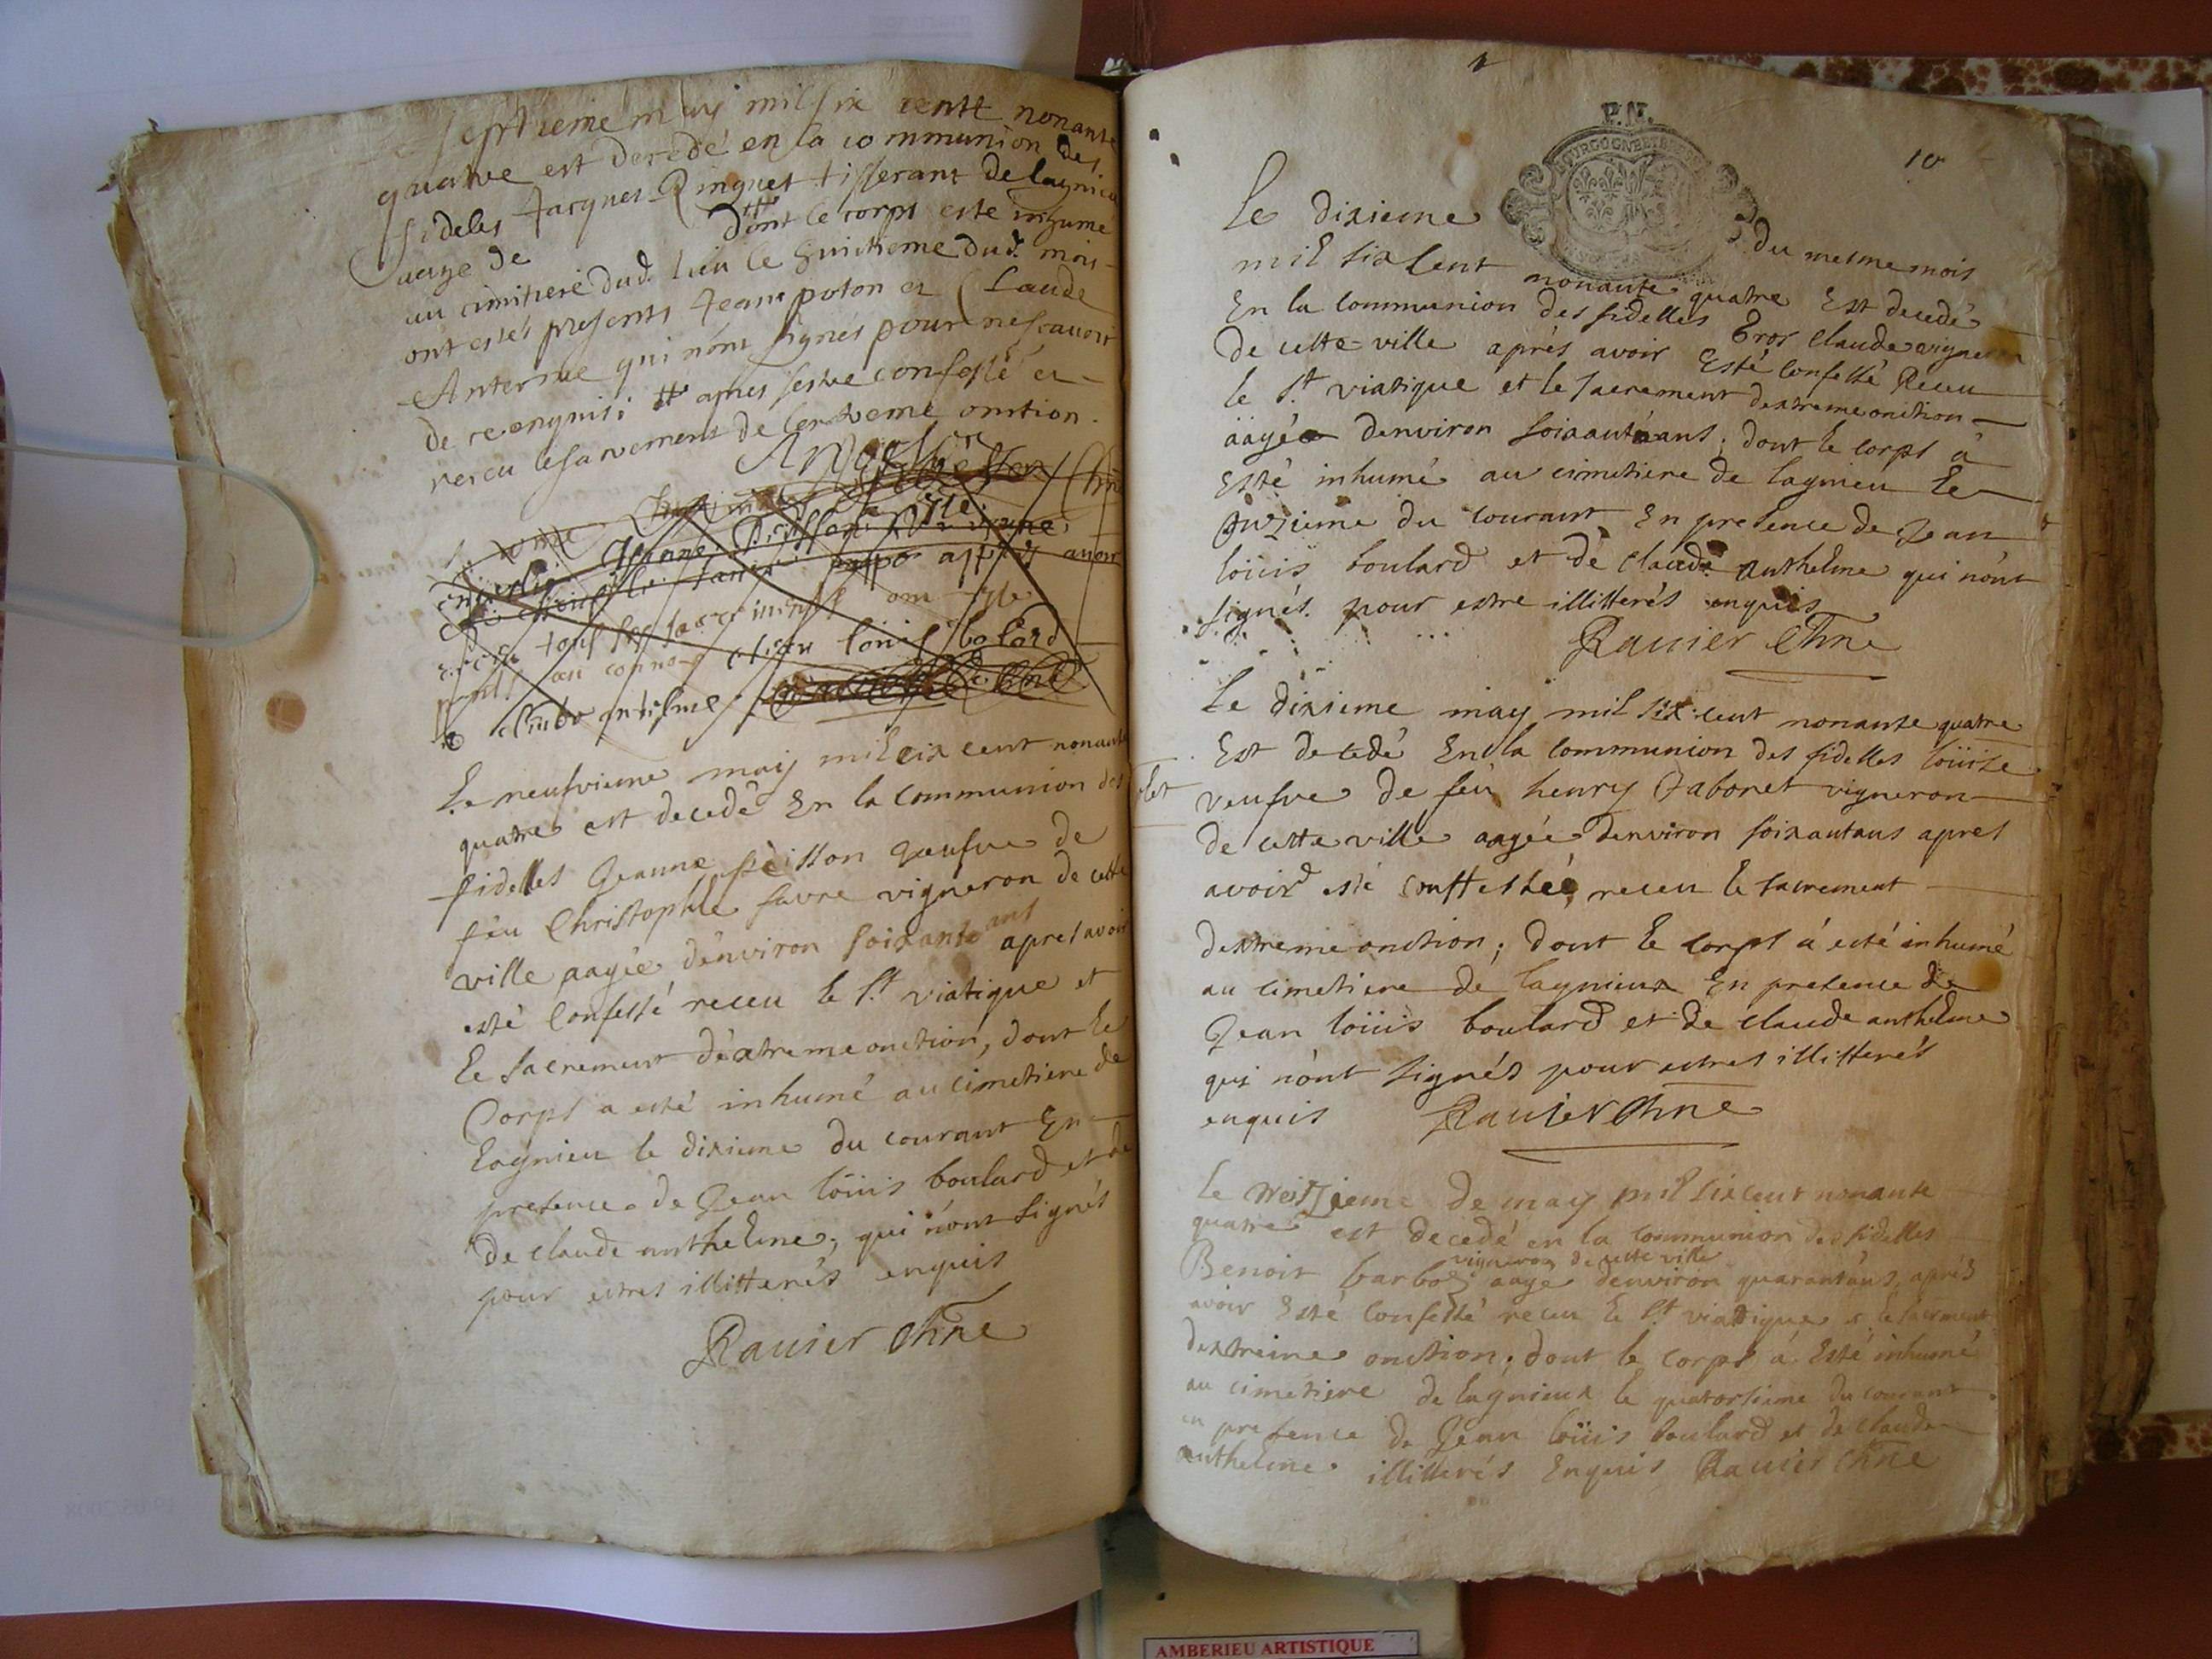 septieme may mil six centt nonante
quatre est decedé en la communion des
fideles Jacques Ringuet tisserant de lagnieu
aage de dont le corps este inhumé
au cimitiere dud. lieu le huictieme dud. mois
ont estés presents Jean poton et Claude
Anterme qui nont signés pour ne scavoir
de ce enquis; apres sestre confessé et
receu le sacrement de lextreme onction.
tous les sacrements
louis bolard
Le neufvieme may mil six cent nonante
quatre est decedé En la Communion des
fidelles Jeanne peisson veufve de
feu Christophle favre vigneron de cette
ville aagée d'environ soixante ans apres avoir
esté Confessé receu le St. viatique et
le Sacrement d'extreme onction, dont le
Corps a esté inhumé au cimetiere de
Lagnieu le dixieme du courant En
presence de Jean loüis boulard et de
de claude anthelme, qui n'ont signés
pour estres illitterés enquis
Ravier Chne
10
P.N.
BOURGOGNE ET BRESSE
Le dixieme du mesme mois
mil six Cent nonante quatre Est decedé
En la Communion des fidelles Eror Claude vigneron
De cette ville aprés avoir Esté Confessé Receu
le St. viatique et le sacrement dextreme onction
aagée denviron soixant ans; dont le corps à
Esté inhumé au cimetiere de lagnieu le
onzieme du courant En presence de Jean
loüis boulard et de claude anthelme qui n'ont
signés pour estre illitterés enquis
Ravier Chne
Le dixieme may mil six cent nonante quatre
Est decedé En la Communion des fidelles loüise
veufve de feu henry Jaboret vigneron
de cette ville aagée denviron soixantans apres
avoir esté Conffessée, receu le sacrement
dextreme onction; dont le corps à esté inhumé
au cimetiere de lagnieux En presence de
Jean loüis boulard et de claude anthelme
qui n'ont signés pour estres illitterés
enquis Ravier Chne
Le treizieme de may mil six cent nonante
quatre est decedé en la Communion des fidelles
vigneron de cette ville
Benoit barboz aagé denviron quarantans, aprés
avoir Esté Confessé receu le St. viatique et le sacrement
dextreme onction; dont le corps à Esté inhumé
au cimetiere de lagnieux le quatorsieme du courant
en presence de Jean loüis boulard et de claude
anthelme illitterés Enquis Ravier Chne
AMBERIEU ARTISTIQUE